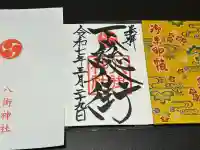 奉拝
下総八街
令和七年三月二十九日
八街神社
御朱印帳